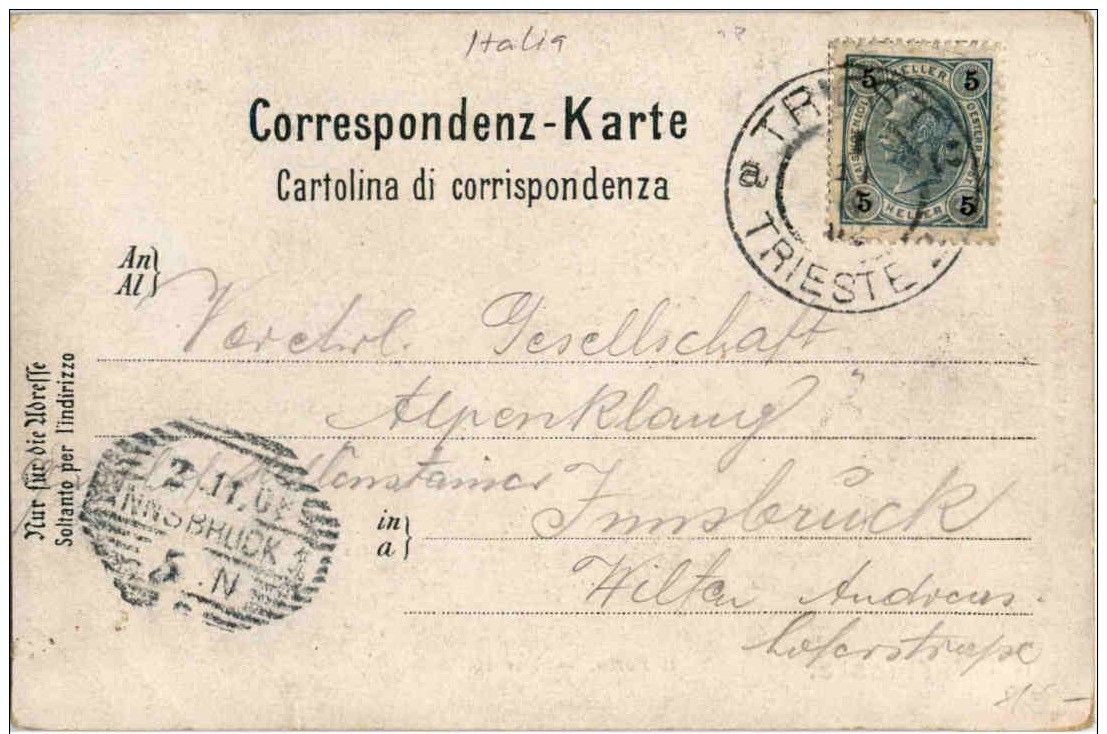 Italia
Correspondenz-Karte
Cartolina di corrispondenza
5 HELLER 5
5 HELLER 5
TRIEST
a TRIESTE
An
Al
Verehrl. Gesellschaft
Alpenklang"
Innsbruck
in
a
Wilten Andreas-
hoferstraße
Nur für die Adresse
Soltanto per l'indirizzo
2.11.01
INNSBRUCK 1
5. N